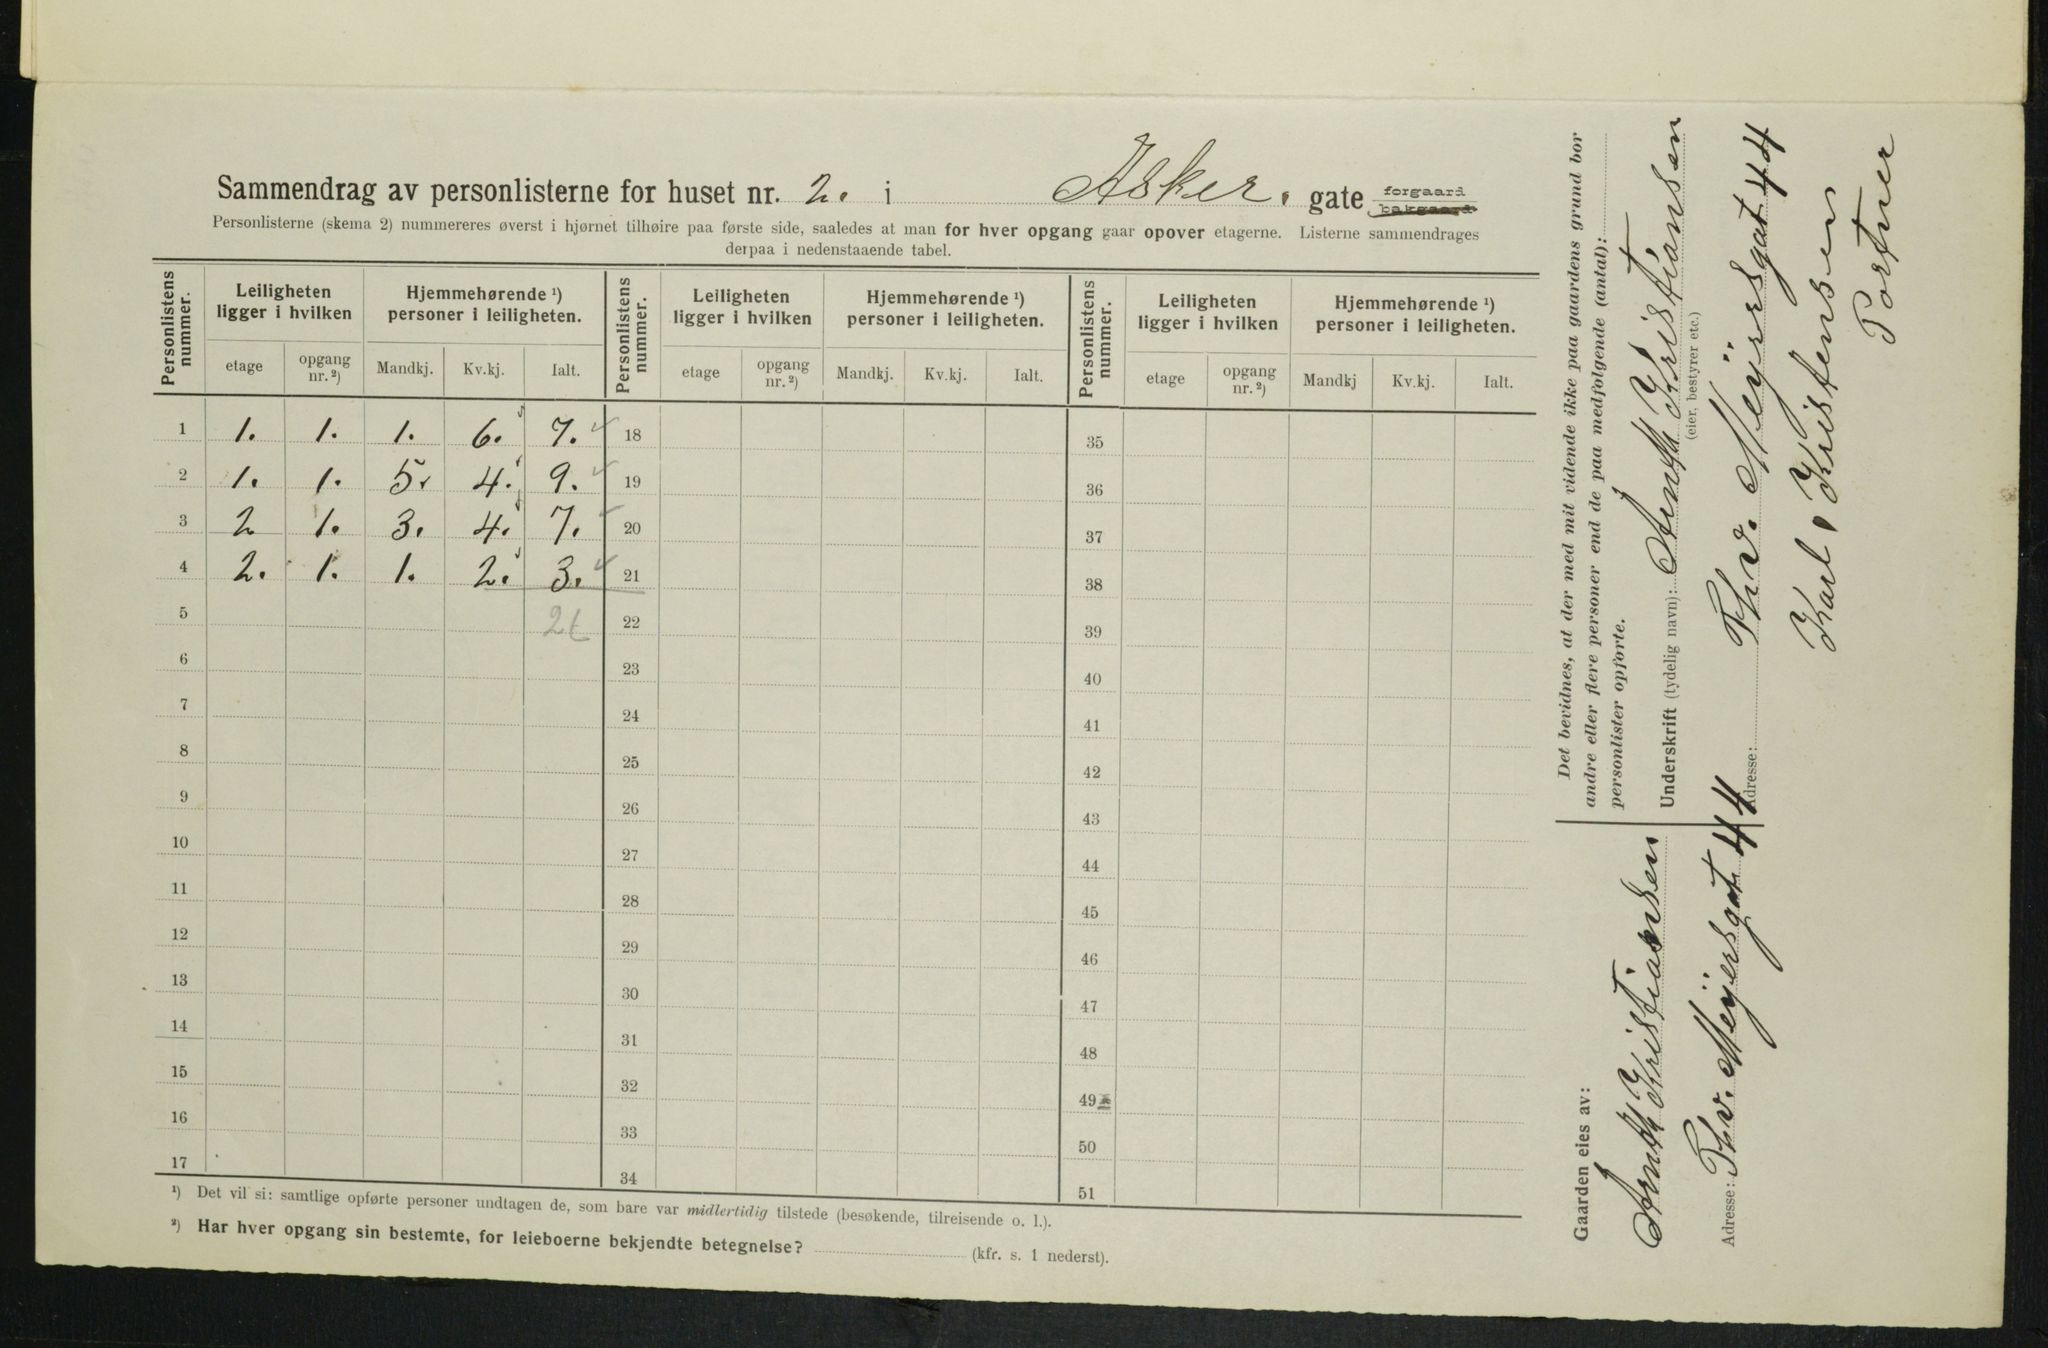 Sammendrag av personlisterne for huset nr. 2. i Asker. gate forgaard bakgaard
Personlisterne (skema 2) nummereres øverst i hjørnet tilhøire paa første side, saaledes at man for hver opgang gaar opover etagerne. Listerne sammendrages
derpaa i nedenstaaende tabel.
Personlistens nummer. Leiligheten ligger i hvilken Hjemmehørende ¹) personer i leiligheten. Personlistens nummer. Leiligheten ligger i hvilken Hjemmehørende ¹) personer i leiligheten. Personlistens nummer. Leiligheten ligger i hvilken Hjemmehørende ¹) personer i leiligheten.
etage opgang nr. ²) Mandkj. Kv.kj. Ialt. etage opgang nr. ²) Mandkj. Kv.kj. Ialt. etage opgang nr. ²) Mandkj Kv.kj. Ialt.
1 1. 1. 1. 6. 7. 18 35
2 1. 1. 5. 4. 9. 19 36
3 2 1. 3. 4. 7. 20 37
4 2. 1. 1. 2. 3. 21 38
5 22 39
6 23 40
7 24 41
8 25 42
9 26 43
10 27 44
11 28 45
12 29 46
13 30 47
14 31 48
15 32 49
16 33 50
17 34 51
¹) Det vil si: samtlige opførte personer undtagen de, som bare var midlertidig tilstede (besøkende, tilreisende o. l.).
²) Har hver opgang sin bestemte, for leieboerne bekjendte betegnelse? (kfr. s. 1 nederst).
Det bevidnes, at der med mit vidende ikke paa gaardens grund bor
andre eller flere personer end de paa medfølgende (antal):
personlister opførte.
Underskrift (tydelig navn): Kristiansen
(eier, bestyrer etc.)
Adresse: Thv. Meÿersgat 44
Karl. Kristensen
Portner
Gaarden eies av:
Kristiansen
Adresse: Thv. Meÿersgat 44